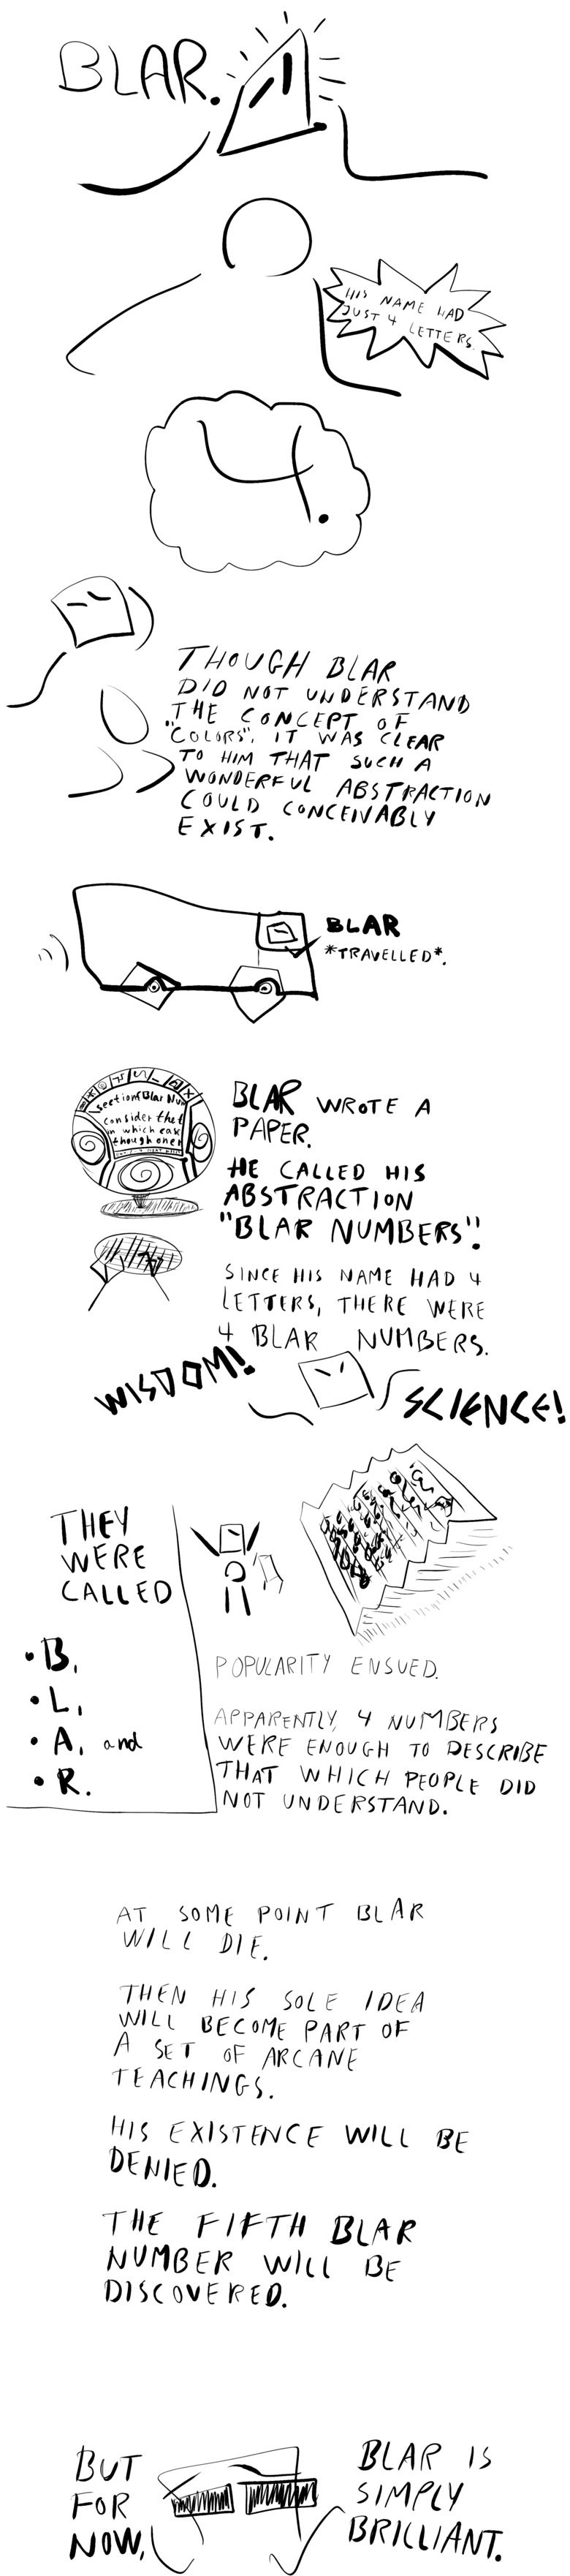 BLAR.
HIS NAME HAD
JUST 4 LETTERS.
4.
THOUGH BLAR
DID NOT UNDERSTAND
THE CONCEPT OF
"COLORS", IT WAS CLEAR
TO HIM THAT SUCH A
WONDERFUL ABSTRACTION
COULD CONCEIVABLY
EXIST.
BLAR
*TRAVELLED*.
section of Blar Num
consider that
in which case
though one
BLAR WROTE A
PAPER.
HE CALLED HIS
ABSTRACTION
"BLAR NUMBERS"!
SINCE HIS NAME HAD 4
LETTERS, THERE WERE
4 BLAR NUMBERS.
WISDOM!
SCIENCE!
THEY
WERE
CALLED
• B,
• L,
• A, and
• R.
POPULARITY ENSUED.
APPARENTLY, 4 NUMBERS
WERE ENOUGH TO DESCRIBE
THAT WHICH PEOPLE DID
NOT UNDERSTAND.
AT SOME POINT BLAR
WILL DIE.
THEN HIS SOLE IDEA
WILL BECOME PART OF
A SET OF ARCANE
TEACHINGS.
HIS EXISTENCE WILL BE
DENIED.
THE FIFTH BLAR
NUMBER WILL BE
DISCOVERED.
BUT
FOR
NOW,
BLAR IS
SIMPLY
BRILLIANT.